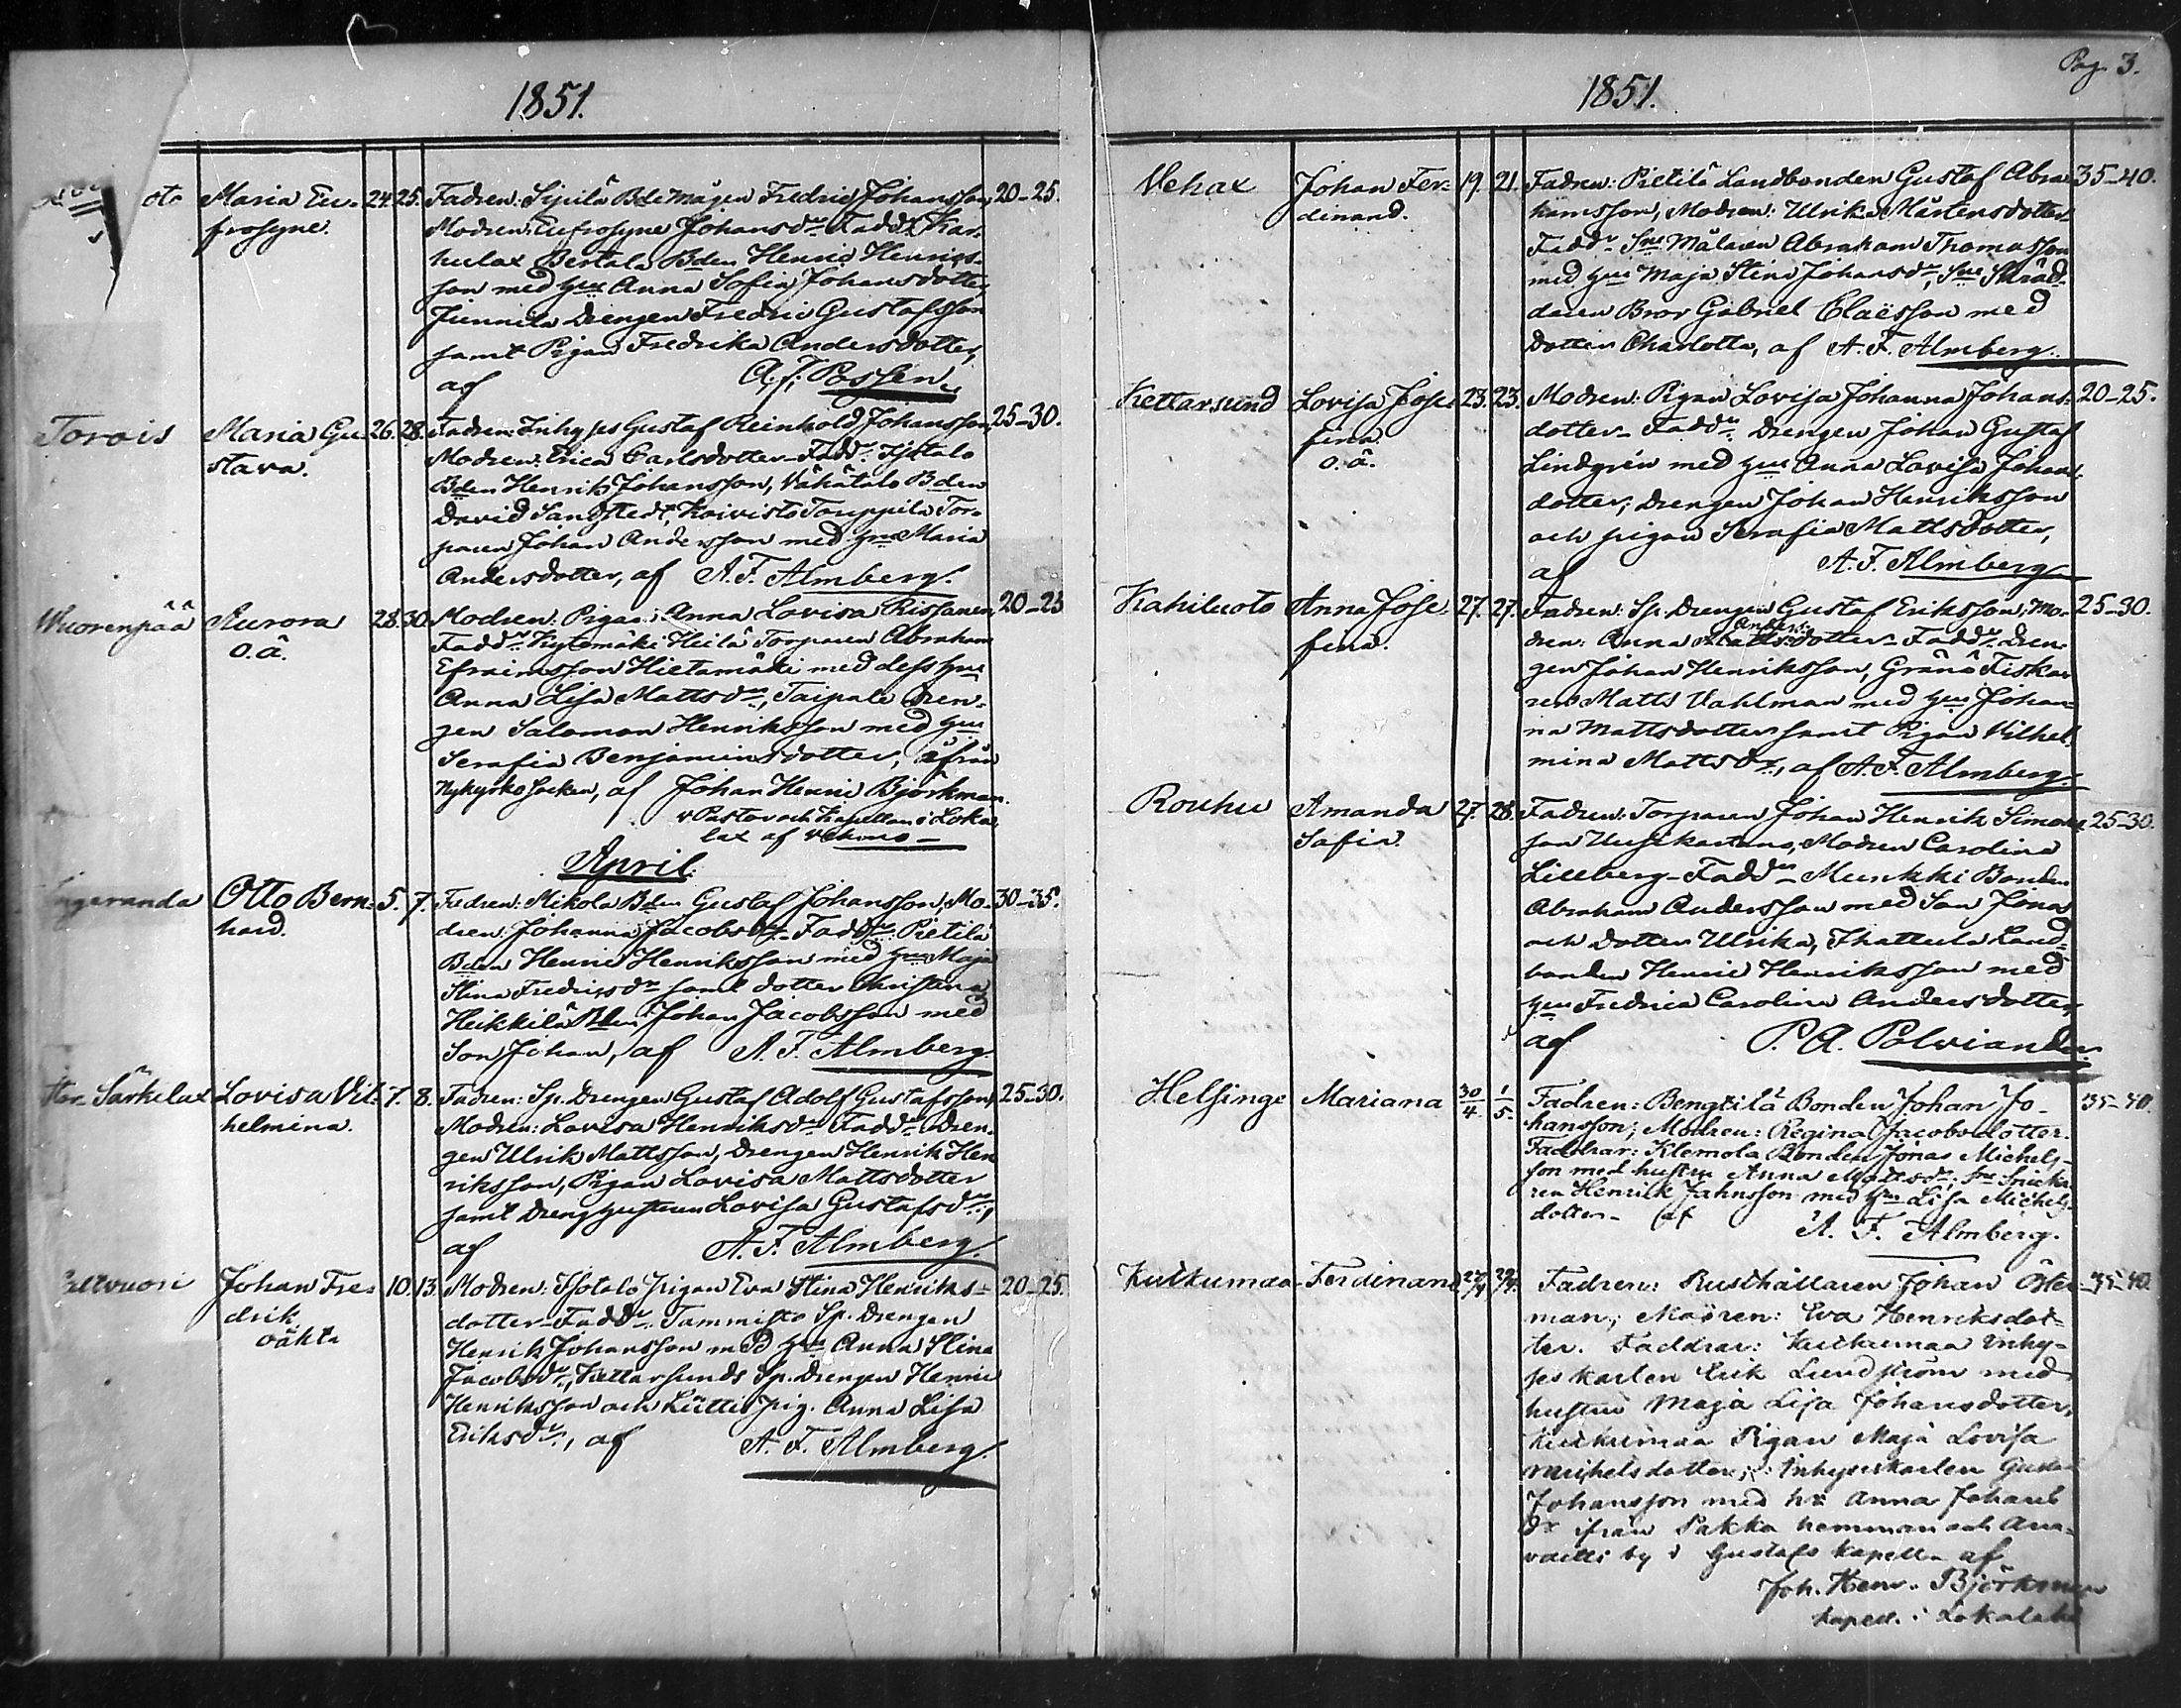 1851.
oto Maria Eu- 24. 25. Fadren: Sipilä Bde Mågen Fredric Johansson, 20-25.
frosyne. Modren: Eufrosyne Johansdr Faddr Kar-
hulax Bertala Bden Henric Henrics-
son med hu Anna Sofia Johansdotter,
Junnila Drengen Fredric Gustafsson
samt Pigan Fredrika Andersdotter,
af
Torois Maria Gu- 26. 28. Fadren: Inhyses Gustaf Reinhold Johansson, 25-30.
stava. Modren: Erica Carlsdotter - Faddr
Bden Henrik Johansson, Vähätalo Bden
David Sandstedt, Koivisto Torppila Tor-
paren Johan Andersson med hu Maria
Andersdotter, af A. F. Almberg.
Wuorenpää Aurora 28. 30. Modren: Pigan Anna Lovisa 20-25
o. ä. Faddr Kytömäki Heilä Torparen Abraham
Efraimsson Hietamäki med dess hu
Anna Lisa Mattsdr, Taipale Dren-
gen Salomon Henriksson med hu
Serafia Benjaminsdotter, ifrån
Nykyrko socken, af Johan Henric Björkman.
v Pastor och Kapellan i Loka
lax af Vehmo
April.
Otto Bern- 5. 7. Fadren: Mikola Bden Gustaf Johansson, Mo- 30-35.
hard. dren: Johanna Jacobsdr - Faddr Pietilä
Bden Henric Henriksson med hu Maja
Stina Fredricsdr samt dotter Christina
Heikkilä Bden Johan Jacobsson med
Son Johan, af A. F. Almberg.
Stor Särkelax Lovisa Vil- 7. 8. Fadren: Sp. Drengen Gustaf Adolf Gustafsson, 25-30.
helmina. Modren: Lovisa Henriksdr Faddr Dren-
gen Ulrik Mattsson, Drengen Henrik Hen
riksson, Pigan Lovisa Mattsdotter
samt Dreng hustrun Lovisa Gustafsdr,
af A. F. Almberg.
Johan Fre- 10. 13. Modren: Isotalo pigan Eva Stina Henriks- 20-25.
drik dotter - Faddr Tammisto Sp. Drengen
oäkta Henrik Johansson med hu Anna Stina
Jacobsdr, Kettarsunds Sp. Drengen Henric
Henriksson och pig. Anna Lisa
Eriksdr, af A. F. Almberg.
Pag. 3.
1851.
Vehax Johan Fer- 19. 21. Fadren: Pietilä Landbonden Gustaf Abra- 35-40.
dinand. hamsson, Modren: Ulrika Mårtensdotter
Faddr Sne Målaren Abraham Thomasson
med hu Maja Stina Johansdr, Sne Skräd-
daren Bror Gabriel Claësson med
Dotter Charlotta, af A. F. Almberg.
Kettarsund Lovisa Jose- 23. 23. Modren: Pigan Lovisa Johanna Johans- 20-25.
fina dotter - Faddr Drengen Johan Gustaf
o. ä. Lindgrén med hu Anna Lovisa Johans-
dotter, Drengen Johan Henriksson
och pigan Serafia Mattsdotter,
af A. F. Almberg
Kahiluoto Anna Jose- 27. 27. Fadren: Sp. Drengen Gustaf Eriksson, Mo- 25-30.
fina. dren: Anna Andersdotter - Faddr Dren-
gen Johan Henriksson, Granö Fiska-
ren Matts Vahlman med hu Johan-
na Mattsdotter samt Pigan Vilhel-
mina Mattsdr, af A. F. Almberg.
Rouhu Amanda 27. 28. Fadren: Torparen Johan Henrik Simons- 25-30.
Sofia. son Uusikartano, Modren Carolina
Lilleberg - Faddr Munkki Bonden
Abraham Andersson med Son Jonas
och Dotter Ulrika, Land-
bonden Henric Henriksson med
hu Fredrica Carolina Andersdotter,
af P. A. Polviander.
Helsinge Mariana 30/4. 1/5. Fadren: Bengtilä Bonden Johan Jo- 35-40.
hansson; Modren: Regina Jacobsdotter.
Faddrar: Klemola Bonden Jonas Michels-
son med hustru Anna Mattsdr, Sne Snicka-
ren Henrik Jahnsson med hu Lisa Michels-
dotter - af A. F. Almberg.
Kuikumaa Ferdinand 27/4 29/4. Fadren: Rusthållaren Johan Öster- 35-40.
man; Modren: Eva Henriksdot-
ter. Faddrar: Kuikumaa Inhy-
ses karlen Erik Lundström med
hustru Maja Lisa Johansdotter,
Kuikumaa Pigan Maja Lovisa
Michelsdotter; Inhyseskarlen Gustaf
Johansson med hu Anna Johans
dr ifrån Pakka hemman och
by i Gustafs Kapell - af
Joh. Henr. Björkman
Kapell. i Lokalaks